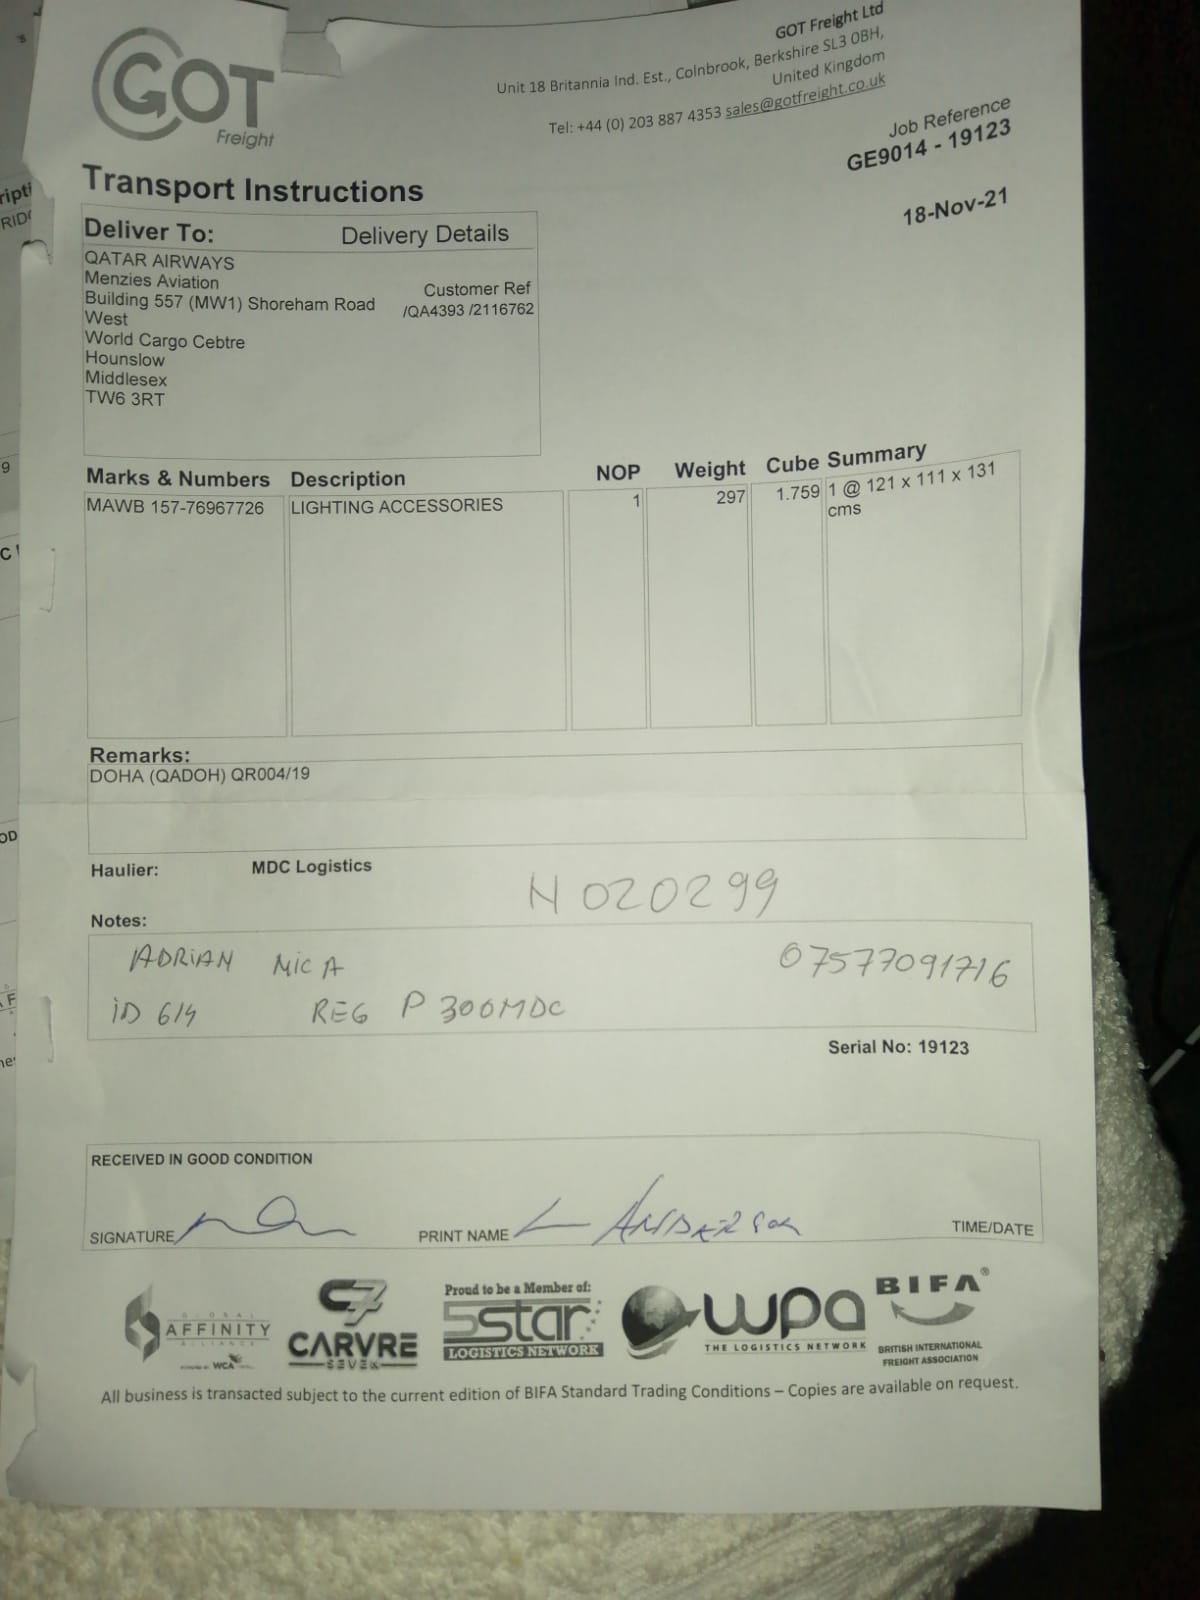 GOT
Freight
GOT Freight Ltd
Unit 18 Britannia Ind. Est., Colnbrook, Berkshire SL3 0BH,
United Kingdom
Tel: +44 (0) 203 887 4353 sales@gotfreight.co.uk
Job Reference
GE9014 - 19123
18-Nov-21
Transport Instructions
Deliver To: Delivery Details
QATAR AIRWAYS
Menzies Aviation
Building 557 (MW1) Shoreham Road
West
World Cargo Cebtre
Hounslow
Middlesex
TW6 3RT
Customer Ref
/QA4393 /2116762
Marks & Numbers Description NOP Weight Cube Summary
MAWB 157-76967726 LIGHTING ACCESSORIES 1 297 1.759 1 @ 121 x 111 x 131
cms
Remarks:
DOHA (QADOH) QR004/19
Haulier: MDC Logistics
N 020299
Notes:
ADRIAN MICA 07577091716
ID 614 REG P 300MDC
Serial No: 19123
RECEIVED IN GOOD CONDITION
SIGNATURE PRINT NAME L ANDERSON TIME/DATE
GLOBAL
AFFINITY
ALLIANCE
WCA
C7
CARVRE
SEVEN
Proud to be a Member of:
5star
LOGISTICS NETWORK
wpa
THE LOGISTICS NETWORK
BIFA®
BRITISH INTERNATIONAL
FREIGHT ASSOCIATION
All business is transacted subject to the current edition of BIFA Standard Trading Conditions – Copies are available on request.